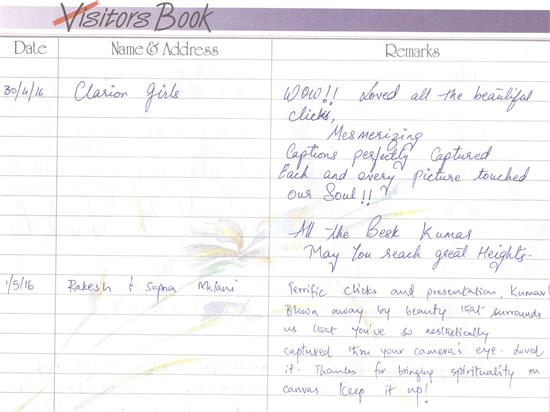 Visitors Book
Date Name & Address Remarks
30/4/16 Clarion Girls WOW!! Loved all the beautiful
clicks,
Mesmerizing
Captions perfectly Captured
Each and every picture touched
our Soul!!
All the Best Kumar
May You reach great Heights.
1/5/16 Rakesh & Sapna Terrific clicks and presentation, Kumar!
Blown away by beauty that surrounds
us that you've so aesthetically
captured thru your camera's eye. Loved
it. Thanks for bringing spirituality on
canvas Keep it up!